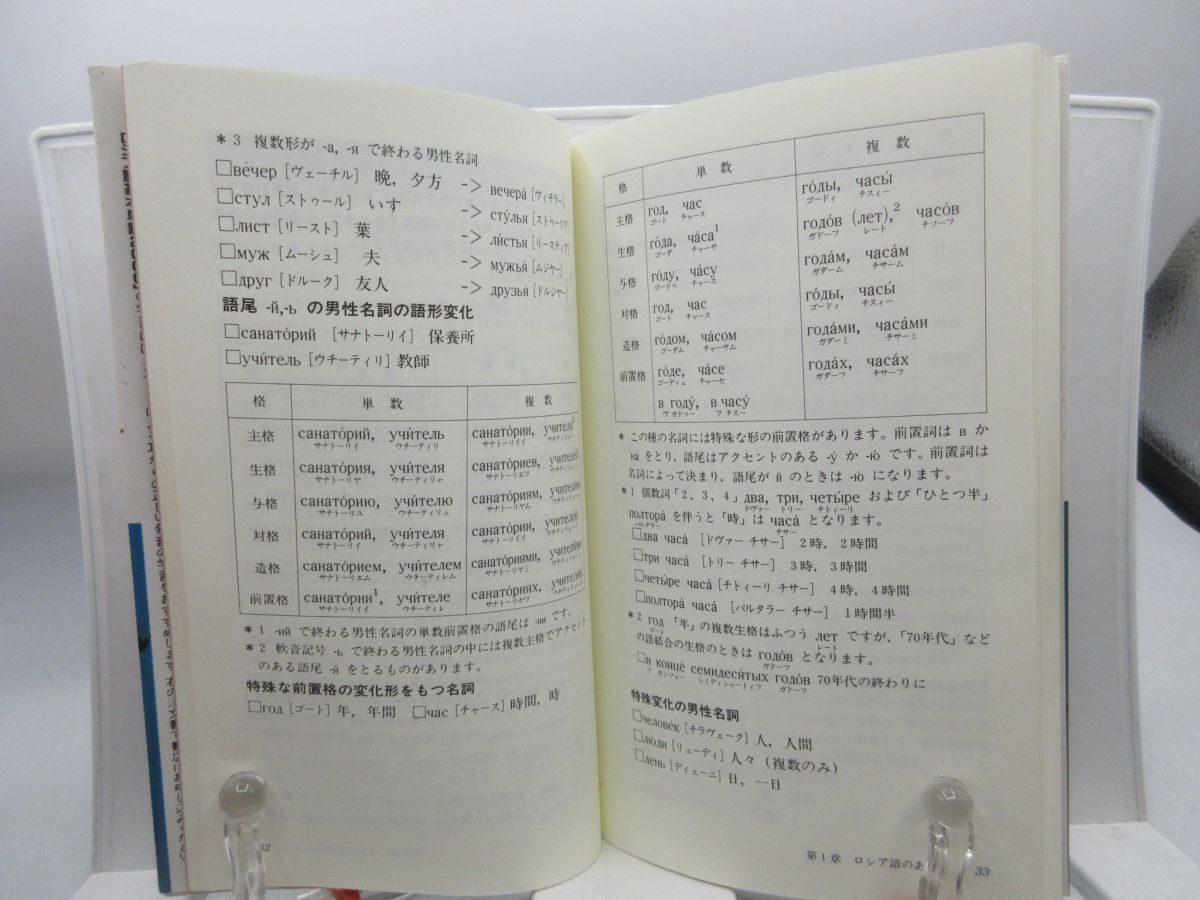 *3 複数形が -а, -я で終わる男性名詞
□вéчер [ヴェーチル] 晩, 夕方 -> вечерá [ヴィチラー]
□стул [ストゥール] いす -> стýлья [ストゥーリア]
□лист [リースト] 葉 -> лѝстья [リースティア]
□муж [ムーシュ] 夫 -> мужья́ [ムジヤー]
□друг [ドルーク] 友人 -> друзья́ [ドルジヤー]
語尾 -й,-ь の男性名詞の語形変化
□санатóрий [サナトーリイ] 保養所
□учи́тель [ウチーティリ] 教師
格 単数 複数
主格 санатóрий, учи́тель санатóрии, учителя́²
サナトーリイ ウチーティリ サナトーリイイ
生格 санатóрия, учи́теля санатóриев,
サナトーリヤ ウチーティリャ サナトーリエフ
与格 санатóрию, учи́телю санатóриям,
サナトーリユ ウチーティリュ サナトーリヤム
対格 санатóрий, учи́теля санатóрии,
サナトーリイ ウチーティリャ サナトーリイイ
造格 санатóрием, учи́телем санатóриями,
サナトーリエム ウチーティレム サナトーリヤミ
前置格 санатóрии¹, учи́теле санатóриях,
サナトーリイイ ウチーティレ サナトーリヤフ
*1 -ий で終わる男性名詞の単数前置格の語尾は -ии です。
*2 軟音記号 -ь で終わる男性名詞の中には複数主格でアクセント
のある語尾 -я́ をとるものがあります。
特殊な前置格の変化形をもつ名詞
□год [ゴート] 年, 年間 □час [チャース] 時間, 時
32
格 単数 複数
主格 год, час гóды, часы́
ゴート チャース ゴードィ チスィー
生格 гóда, чáса¹ годóв (лет),² часóв
ゴーダ チャーサ ガドーフ レート チソーフ
与格 гóду, чáсу годáм, часáм
ゴードゥ チャース ガダーム チサーム
対格 год, час гóды, часы́
ゴート チャース ゴードィ チスィー
造格 гóдом, чáсом годáми, часáми
ゴーダム チャーサム ガダーミ チサーミ
前置格 гóде, чáсе годáх, часáх
ゴーディェ チャーセ ガダーフ チサーフ
в годý, в часý
ヴ ガドゥー フ チスー
* この種の名詞には特殊な形の前置格があります。前置詞は в か
на をとり, 語尾はアクセントのある -ý か -ю́ です。前置詞は
名詞によって決まり, 語尾が й のときは -ю́ になります。
*1 個数詞「2, 3, 4」два, три, четы́ре および「ひとつ半」
ドヴァー トリー チトィーリ
полторá を伴うと「時」は часá となります。
パルタラー チサー
□два часá [ドヴァー チサー] 2時, 2時間
□три часá [トリー チサー] 3時, 3時間
□четы́ре часá [チトィーリ チサー] 4時, 4時間
□полторá часá [パルタラー チサー] 1時間半
*2 год「年」の複数生格はふつう лет ですが,「70年代」など
ゴート レート
の語結合の生格のときは годóв となります。
ガドーフ
□в концé семидеся́тых годóв 70年代の終わりに
フ カンツェー シミディシャートィフ ガドーフ
特殊変化の男性名詞
□человéк [チラヴェーク] 人, 人間
□лю́ди [リューディ] 人々 (複数のみ)
□день [ディェーニ] 日, 一日
第1章 ロシア語のあ
33